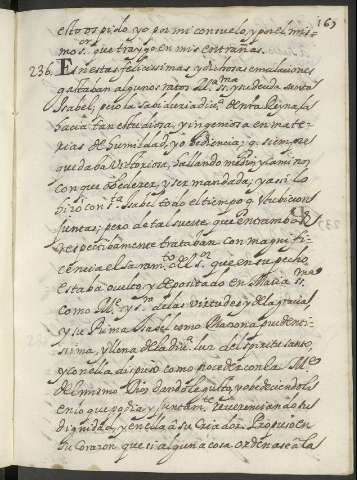 169
esto os pido yo por mi consuelo, y por el mis-
mo s.or que traygo en mis entrañas.
236. En estas felicissimas y dichosas emulaciones
gastaban algunos ratos M.a ss.ma y su deuda santa
Isabel; pero la sabiduria diu.a de nra Reyna, la
hacia tan estudiosa, y ingeniosa en mate-
rias de humildad, y obediencia; q. siempre
quedaba victoriosa, hallando medios y caminos
con que obedecer, y ser mandada; y assi lo
hizo con s.ta Isabel todo el tiempo q. estubieron
juntas; pero de tal suerte, que entrambas
respectibamente trataban con magnifi-
cencia el sacram.to del s.or que en su pecho
estaba oculto, y depositado en Maria ss.ma
como M.e y s.ra de las virtudes, y de la gracia;
y su Prima Isabel como Matrona prudenti-
ssima, y llena de la diu.a luz del espiritu santo,
y con ella dispuso como proceder con la M.e
del mismo Dios dandole gusto, y obedeciendola
en lo que podia, y juntam.te reverenciando su
dignidad, y en ella à su Criador. Propuso en
su Corazon, que si alguna cosa ordenase à la